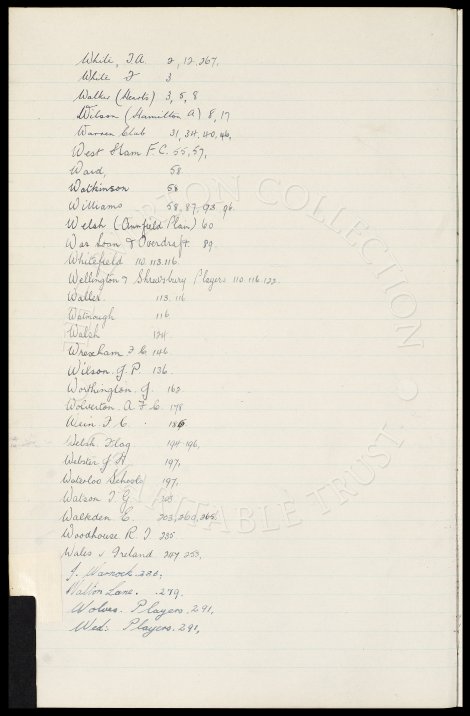 White, J.A. 2, 12, 267.
White J 3
Walker (Hearts) 3, 5, 8
Wilson (Hamilton A) 8, 17
Warren Club 31, 34, 40, 46,
West Ham F.C. 55, 57,
Ward, 58
Watkinson 58
Williams 58, 87, 93 96.
Welsh (Annfield Plain) 60
War Loan & Overdraft 89.
Whitefield 110. 113. 116.
Wellington & Shrewsbury Players 110. 116. 122
Waller 113. 116
Watmough 116
Walsh 124
Wrexham F.C. 146
Wilson. J. P. 136.
Worthington. J. 162
Wolverton A.F.C. 178
Wein F.C. 186
Welsh Flag 194 196,
Webster J H 197,
Waterloo Schools 197,
Watson J G 203
Walkden E. 203, 260, 265.
Woodhouse R. J. 235.
Wales v Ireland 247. 253.
J. Warnock.
Walton Lane. 279.
Wolves. Players. 291,
Wed: Players. 291,
EVERTON COLLECTION
CHARITABLE TRUST